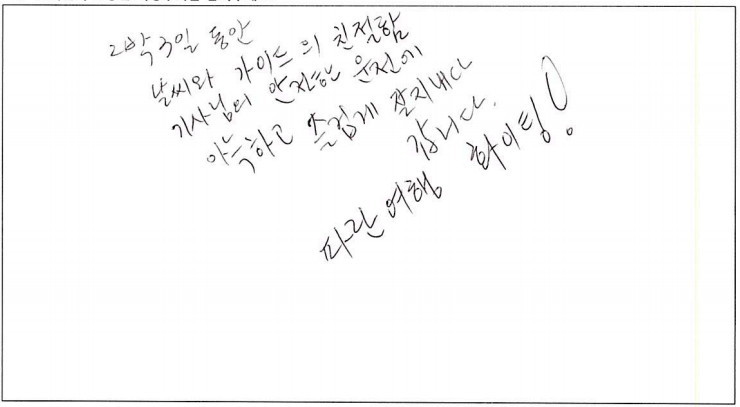 2박3일 동안
날씨와 가이드의 친절함
기사님의 안전한 운전에
아늑하고 즐겁게 잘지내다
갑니다.
파란여행 화이팅!